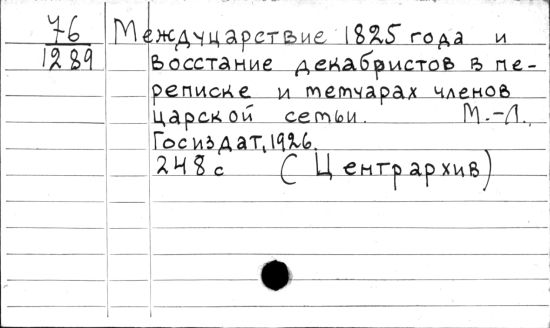 76
1289
Междуцарствие 1825 года и
восстание декабристов в пе-
реписке и мемуарах членов
царской семьи. М.-Л.,
Госиздат, 1926.
248 с (Центрархив)